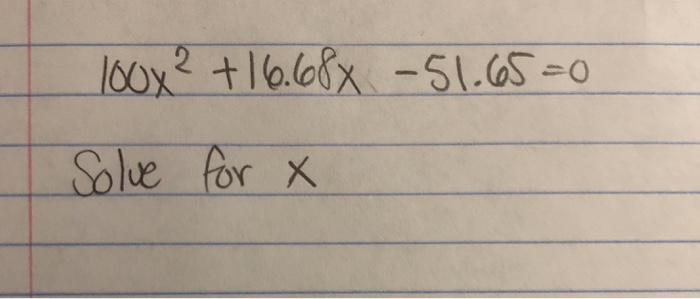 100x² +16.68x -51.65=0
Solve for x